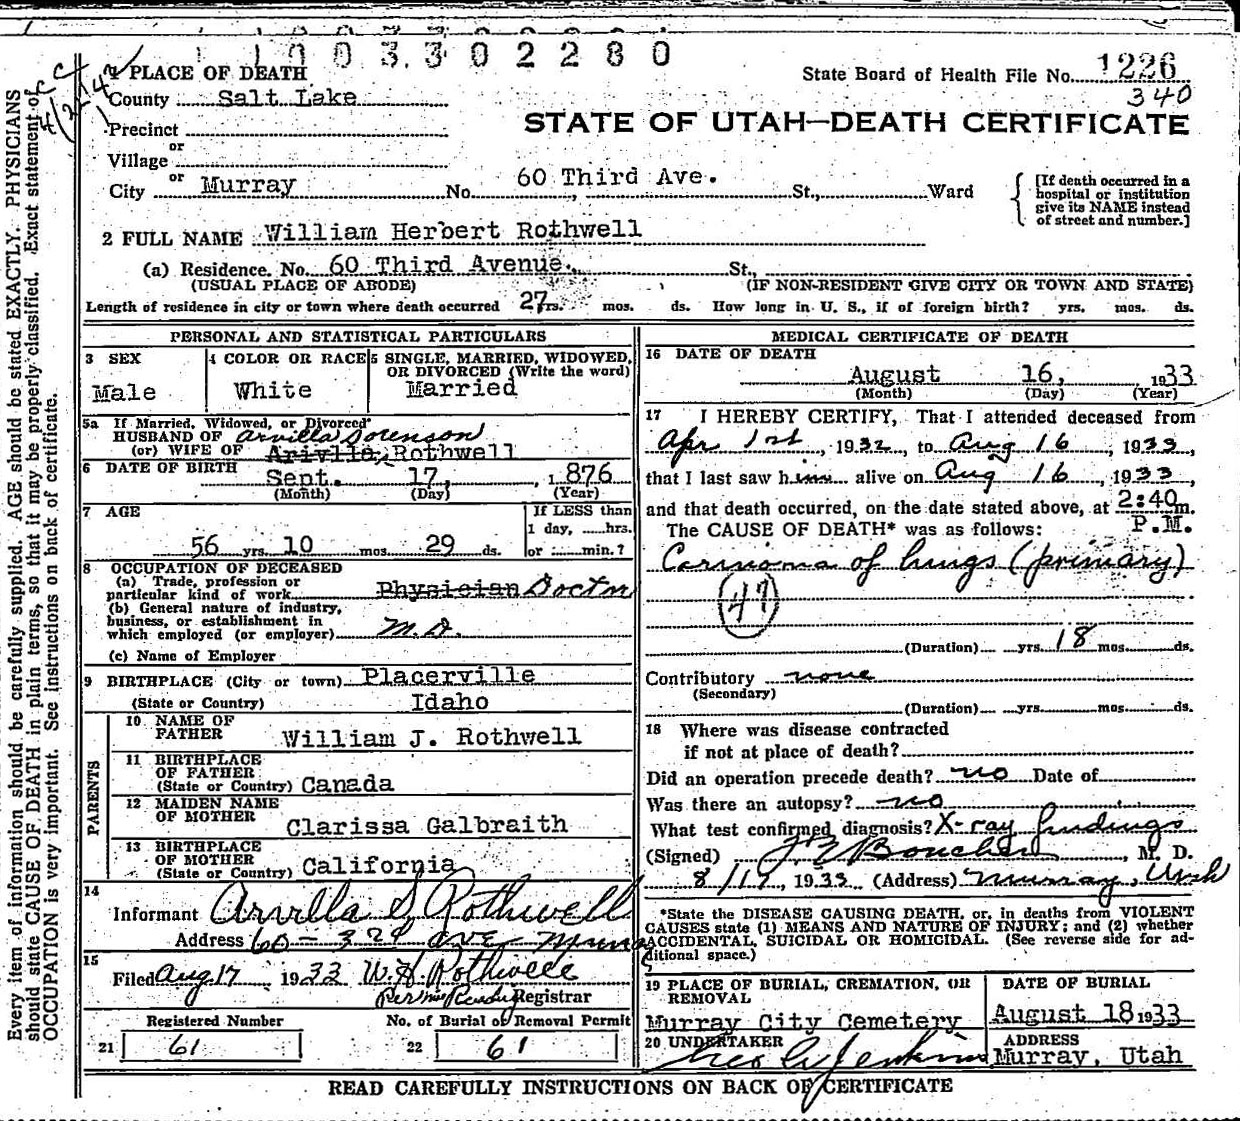 1003302280
1 PLACE OF DEATH
State Board of Health File No. 1226
County Salt Lake
340
Precinct
STATE OF UTAH—DEATH CERTIFICATE
or
Village
or
City Murray No. 60 Third Ave. St., Ward
[If death occurred in a
hospital or institution
give its NAME instead
of street and number.]
2 FULL NAME William Herbert Rothwell
(a) Residence. No. 60 Third Avenue. St.,
(USUAL PLACE OF ABODE) (IF NON-RESIDENT GIVE CITY OR TOWN AND STATE)
Length of residence in city or town where death occurred 27 yrs. mos. ds. How long in U. S., if of foreign birth? yrs. mos. ds.
PERSONAL AND STATISTICAL PARTICULARS
3 SEX
Male
4 COLOR OR RACE
White
5 SINGLE, MARRIED, WIDOWED,
OR DIVORCED (Write the word)
Married
5a If Married, Widowed, or Divorced
HUSBAND OF Arvilla Sorenson
(or) WIFE OF Arivilla Rothwell
6 DATE OF BIRTH
Sept. 17, 1876
(Month) (Day) (Year)
7 AGE
56 yrs. 10 mos. 29 ds.
If LESS than
1 day, hrs.
or min.?
8 OCCUPATION OF DECEASED
(a) Trade, profession or
particular kind of work Physician Doctor
(b) General nature of industry,
business, or establishment in
which employed (or employer) M.D.
(c) Name of Employer
9 BIRTHPLACE (City or town) Placerville
(State or Country) Idaho
PARENTS
10 NAME OF
FATHER William J. Rothwell
11 BIRTHPLACE
OF FATHER
(State or Country) Canada
12 MAIDEN NAME
OF MOTHER Clarissa Galbraith
13 BIRTHPLACE
OF MOTHER
(State or Country) California
14
Informant Arvilla S. Rothwell
Address 60 - 3rd Ave Murray
15
Filed Aug 17 1933 W. H. Rothwell
Registrar
Registered Number
21 61
No. of Burial or Removal Permit
22 61
MEDICAL CERTIFICATE OF DEATH
16 DATE OF DEATH
August 16, 1933
(Month) (Day) (Year)
17 I HEREBY CERTIFY, That I attended deceased from
Apr 1st, 1932, to Aug 16, 1933,
that I last saw him alive on Aug 16, 1933,
and that death occurred, on the date stated above, at 2:40 m.
P.M.
The CAUSE OF DEATH* was as follows:
Carcinoma of lungs (primary)
47
(Duration) yrs. 18 mos. ds.
Contributory none
(Secondary)
(Duration) yrs. mos. ds.
18 Where was disease contracted
if not at place of death?
Did an operation precede death? no Date of
Was there an autopsy? no
What test confirmed diagnosis? X-ray findings
(Signed) Boucher, M. D.
8/17, 1933 (Address) Murray, Utah
*State the DISEASE CAUSING DEATH, or, in deaths from VIOLENT
CAUSES state (1) MEANS AND NATURE OF INJURY; and (2) whether
ACCIDENTAL, SUICIDAL OR HOMICIDAL. (See reverse side for ad-
ditional space.)
19 PLACE OF BURIAL, CREMATION, OR
REMOVAL
Murray City Cemetery
DATE OF BURIAL
August 18 1933
20 UNDERTAKER
Jenkins
ADDRESS
Murray, Utah
READ CAREFULLY INSTRUCTIONS ON BACK OF CERTIFICATE
Every item of information should be carefully supplied. AGE should be stated EXACTLY. PHYSICIANS
should state CAUSE OF DEATH in plain terms, so that it may be properly classified. Exact statement of
OCCUPATION is very important. See instructions on back of certificate.